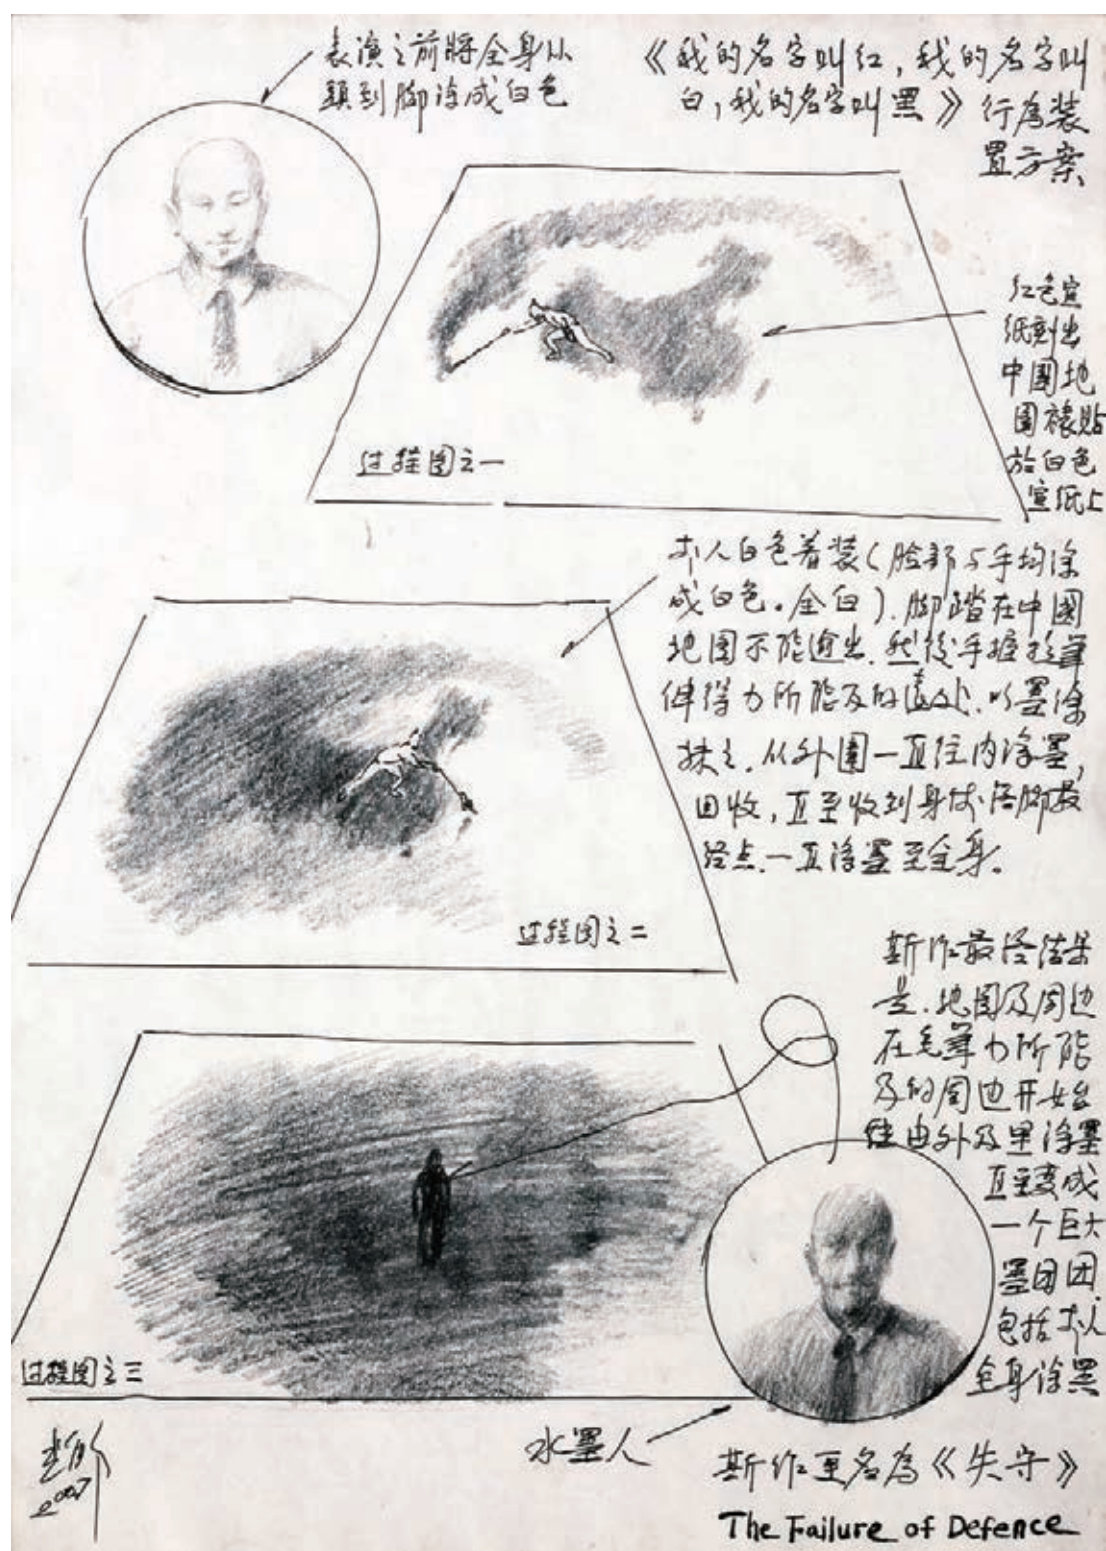 表演之前將全身从
頭到脚涂成白色
《我的名字叫红，我的名字叫
白，我的名字叫黑》行為装
置方案
红色宣
纸刻出
中國地
圖裱貼
於白色
宣纸上
过程图之一
本人白色着装（脸部与手均涂
成白色。全白）.脚踏在中國
地图不能逾出.然後手握毛筆
伸得力所能及的遠处.以墨涂
抹之.从外圍一直往内涂墨，
回收，直至收到身体
一直涂墨至全身。
过程图之二
斯作最终结果
是.地图及周边
在毛筆力所能
及的周边开始
由外及里涂墨
直至变成
一个巨大
墨团团.
包括本人
全身涂黑
过程图之三
2007
水墨人
斯作更名為《失守》
The Failure of Defence